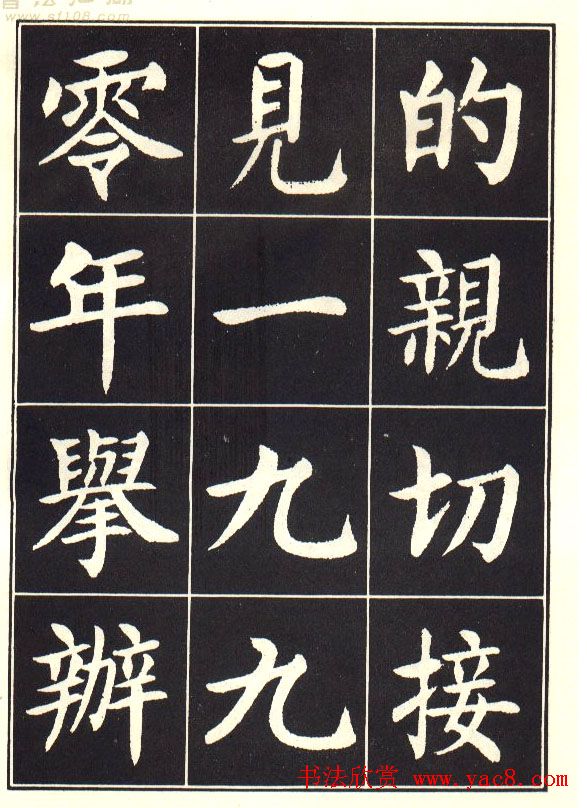 的親切接
見一九九
零年舉辦
书法欣赏 www.yac8.com
www.sf108.com